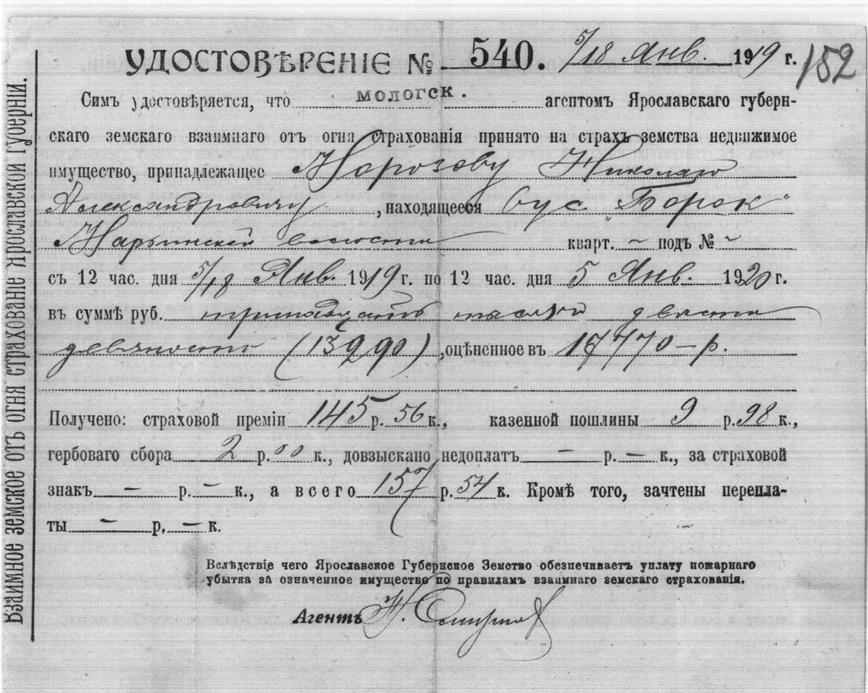 УДОСТОВѢРЕНІЕ № 540. 5/18 Янв. 1919 г. 152
Симъ удостовѣряется, что мологск. агентомъ Ярославскаго губерн-
скаго земскаго взаимнаго отъ огня страхованія принято на страхъ земства недвижимое
имущество, принадлежащее Морозову Николаю
Александровичу, находящееся въ ус. "Борок"
Марьинской волости кварт. – подъ № –
съ 12 час. дня 5/18 Янв. 1919 г. по 12 час. дня 5 Янв. 1920 г.
въ суммѣ руб. тринадцать тысяч двести
девяносто (13290), оцѣненное въ 17770 – р.
Получено: страховой преміи 145 р. 56 к., казенной пошлины 9 р. 98 к.,
гербоваго сбора 2 р. 00 к., довзыскано недоплатъ – р. – к., за страховой
знакъ – р. – к., а всего 157 р. 54 к. Кромѣ того, зачтены перепла-
ты – р. – к.
Вслѣдствіе чего Ярославское Губернское Земство обезпечиваетъ уплату пожарнаго
убытка за означенное имущество по правиламъ взаимнаго земскаго страхованія.
Агентъ Н. Смирнов
Взаимное земское отъ огня страхованіе Ярославской губерніи.